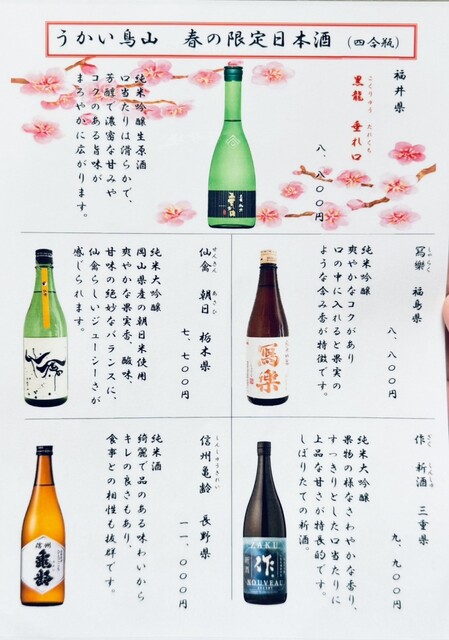 うかい鳥山　春の限定日本酒　(四合瓶)
福井県
こくりゅう　たれくち
黒龍　垂れ口
八、八〇〇円
純米吟醸生原酒
口当たりは滑らかで、
芳醇で濃密な甘みや
コクのある旨味が
まろやかに広がります。
しゃらく
寫樂　福島県
八、八〇〇円
純米吟醸
爽やかなコクがあり
口の中に入れると果実の
ような含み香が特徴です。
寫楽
せんきん　あさひ
仙禽　朝日　栃木県
七、七〇〇円
純米大吟醸
岡山県産の朝日米使用
爽やかな果実香、酸味、
甘味の絶妙なバランスに、
仙禽らしいジューシーさが
感じられます。
ざく　しんしゅ
作　新酒　三重県
九、九〇〇円
純米大吟醸
果物の様なさわやかな香り、
すっきりとした口当たりに
上品な甘さが特長的です。
しぼりたての新酒。
ZAKU
作
新酒
NOUVEAU
しんしゅうきれい
信州亀齢　長野県
一一、〇〇〇円
純米酒
綺麗で品のある味わいから
キレの良さもあり、
食事との相性も抜群です。
信州
亀齢